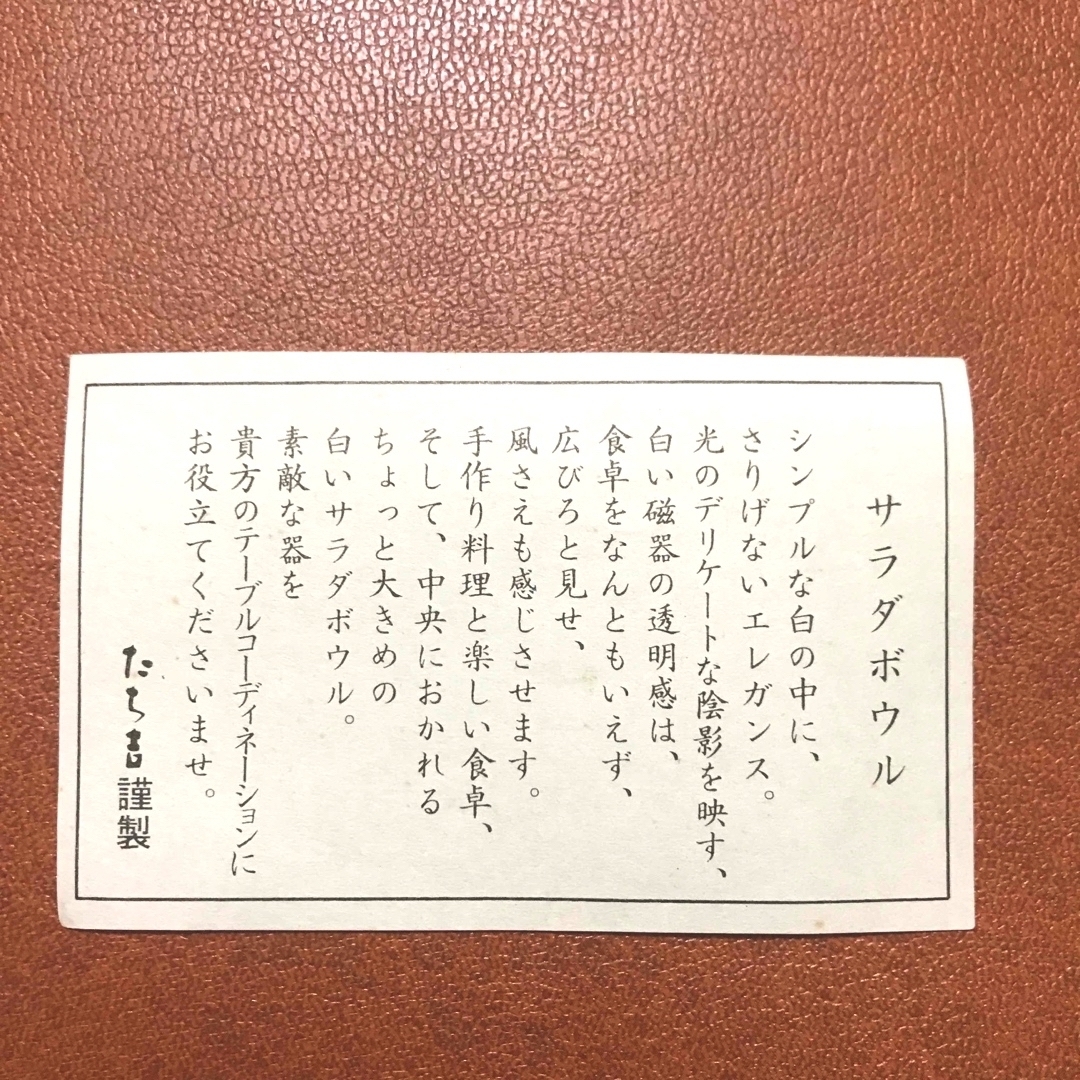 サラダボウル
シンプルな白の中に、
さりげないエレガンス。
光のデリケートな陰影を映す、
白い磁器の透明感は、
食卓をなんともいえず、
広びろと見せ、
風さえも感じさせます。
手作り料理と楽しい食卓、
そして、中央におかれる
ちょっと大きめの
白いサラダボウル。
素敵な器を
貴方のテーブルコーディネーションに
お役立てくださいませ。
たち吉謹製